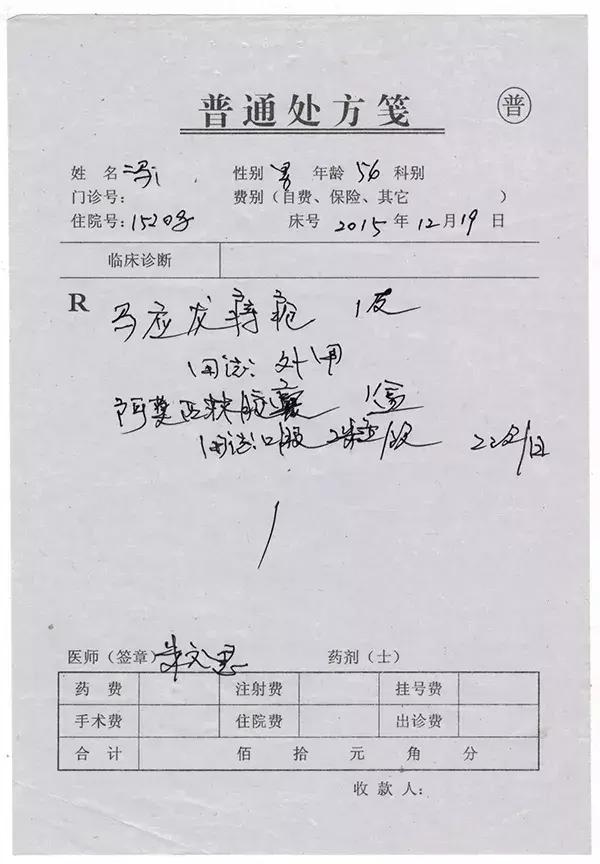 普通处方笺
普
姓 名 性别 男 年龄 56 科别
门诊号: 费别（自费、保险、其它 ）
住院号: 床号 2015 年 12 月 19 日
临床诊断
R 马应龙痔疮 1支
用法: 外用
阿莫西林胶囊 1盒
用法: 口服 2粒/次 2次/日
医师（签章） 药剂（士）
药 费 注射费 挂号费
手术费 住院费 出诊费
合 计 佰 拾 元 角 分
收 款 人: